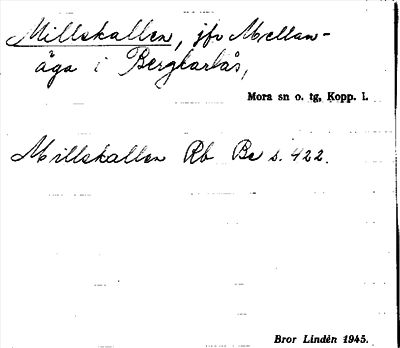 Millskallen, jfr Mellan-
äga i Bergkarlås,
Mora sn o. tg, Kopp. l.
Millskallen Rb Be s. 422.
Bror Lindén 1945.